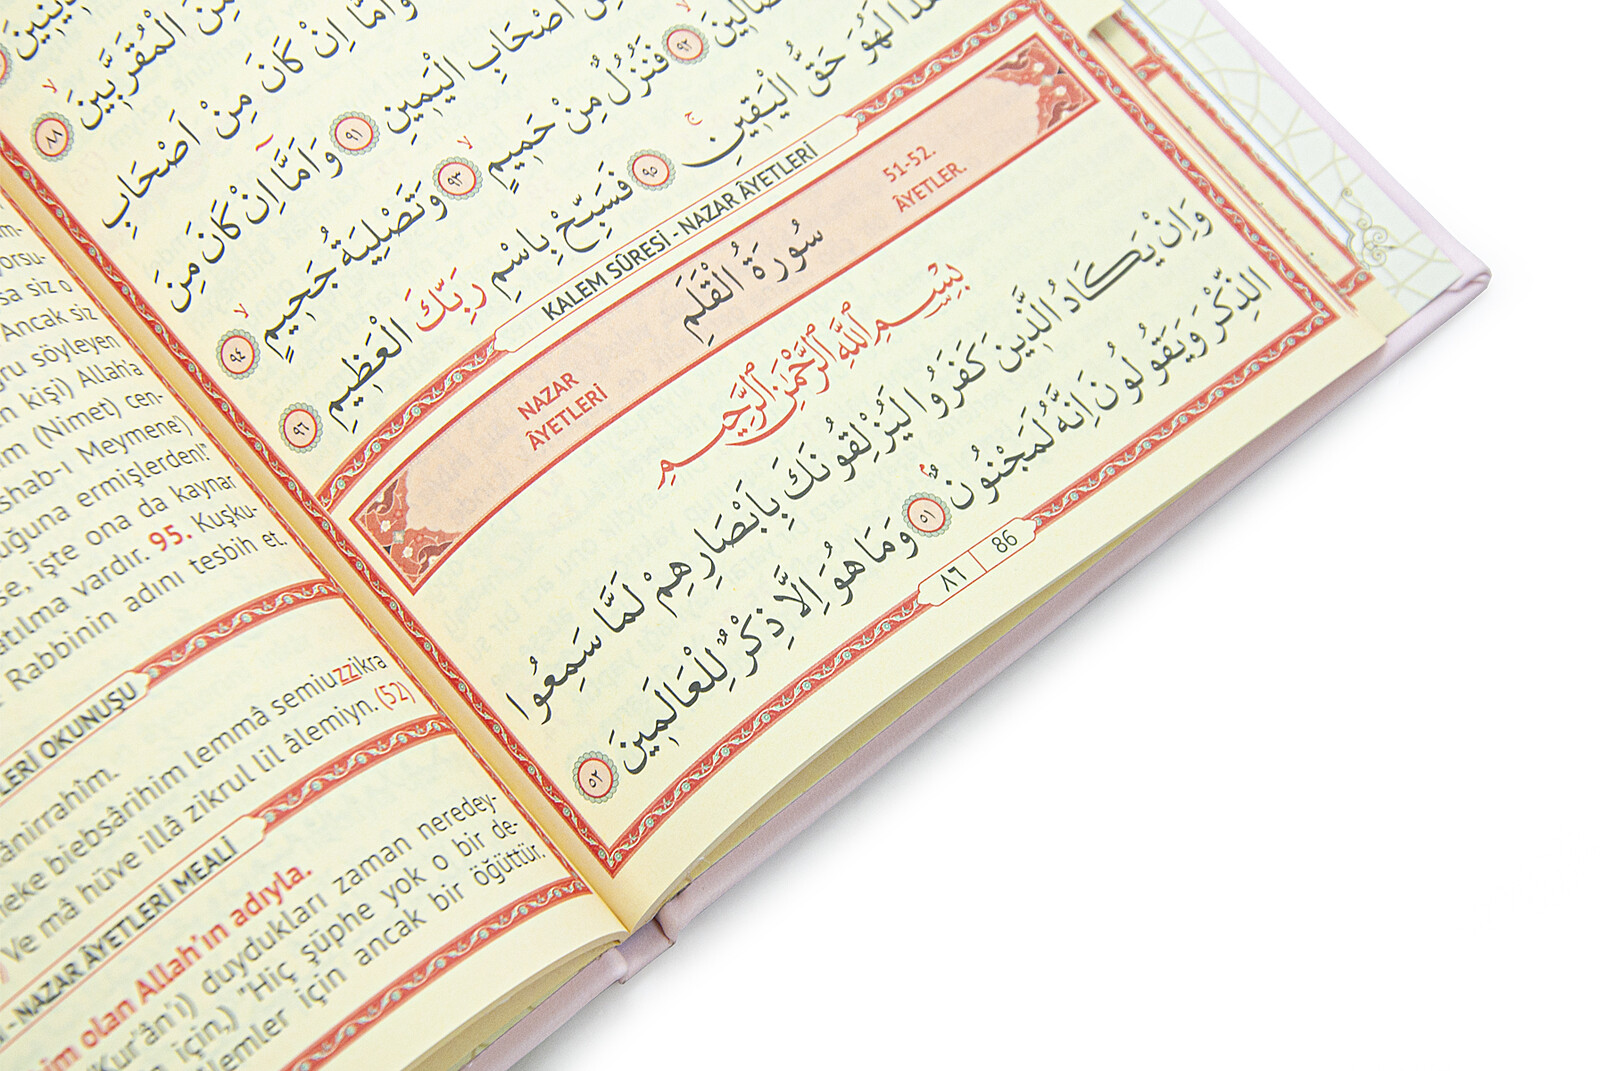 مِنَ الْمُقَرَّبِينَ ٨٨
وَاَمَّا اِنْ كَانَ مِنْ اَصْحَابِ
اَصْحَابِ الْيَمِينِ ٩١ وَاَمَّا اِنْ كَانَ مِنَ
٩٢ فَنُزُلٌ مِنْ حَمِيمٍ ٩٣ وَتَصْلِيَةُ جَحِيمٍ ٩٤
لَهُوَ حَقُّ الْيَقِينِ ٩٥ فَسَبِّحْ بِاسْمِ رَبِّكَ الْعَظِيمِ ٩٦
KALEM SÛRESİ - NAZAR ÂYETLERİ
NAZAR ÂYETLERİ
سُورَةُ الْقَلَمِ
51-52. ÂYETLER.
بِسْمِ اللّٰهِ الرَّحْمٰنِ الرَّحِيمِ
وَاِنْ يَكَادُ الَّذِينَ كَفَرُوا لَيُزْلِقُونَكَ بِاَبْصَارِهِمْ لَمَّا سَمِعُوا
الذِّكْرَ وَيَقُولُونَ اِنَّهُ لَمَجْنُونٌ ٥١ وَمَا هُوَ اِلَّا ذِكْرٌ لِلْعَالَمِينَ ٥٢
٨٦ 86
sa siz o
Ancak siz
söyleyen
kişi) Allah'a
(Nimet) cen-
Meymene)
ermişlerden!"
işte ona da kaynar
vardır. 95. Kuşku-
Rabbinin adını tesbih et.
OKUNUŞU
biebsârihim lemmâ semiuzzikra
Ve mâ hüve illâ zikrul lil âlemiyn. (52)
- NAZAR ÂYETLERİ MEALİ
olan Allah'ın adıyla.
(Kur'ân'ı) duydukları zaman neredey-
için,) "Hiç şüphe yok o bir de-
için ancak bir öğüttür.